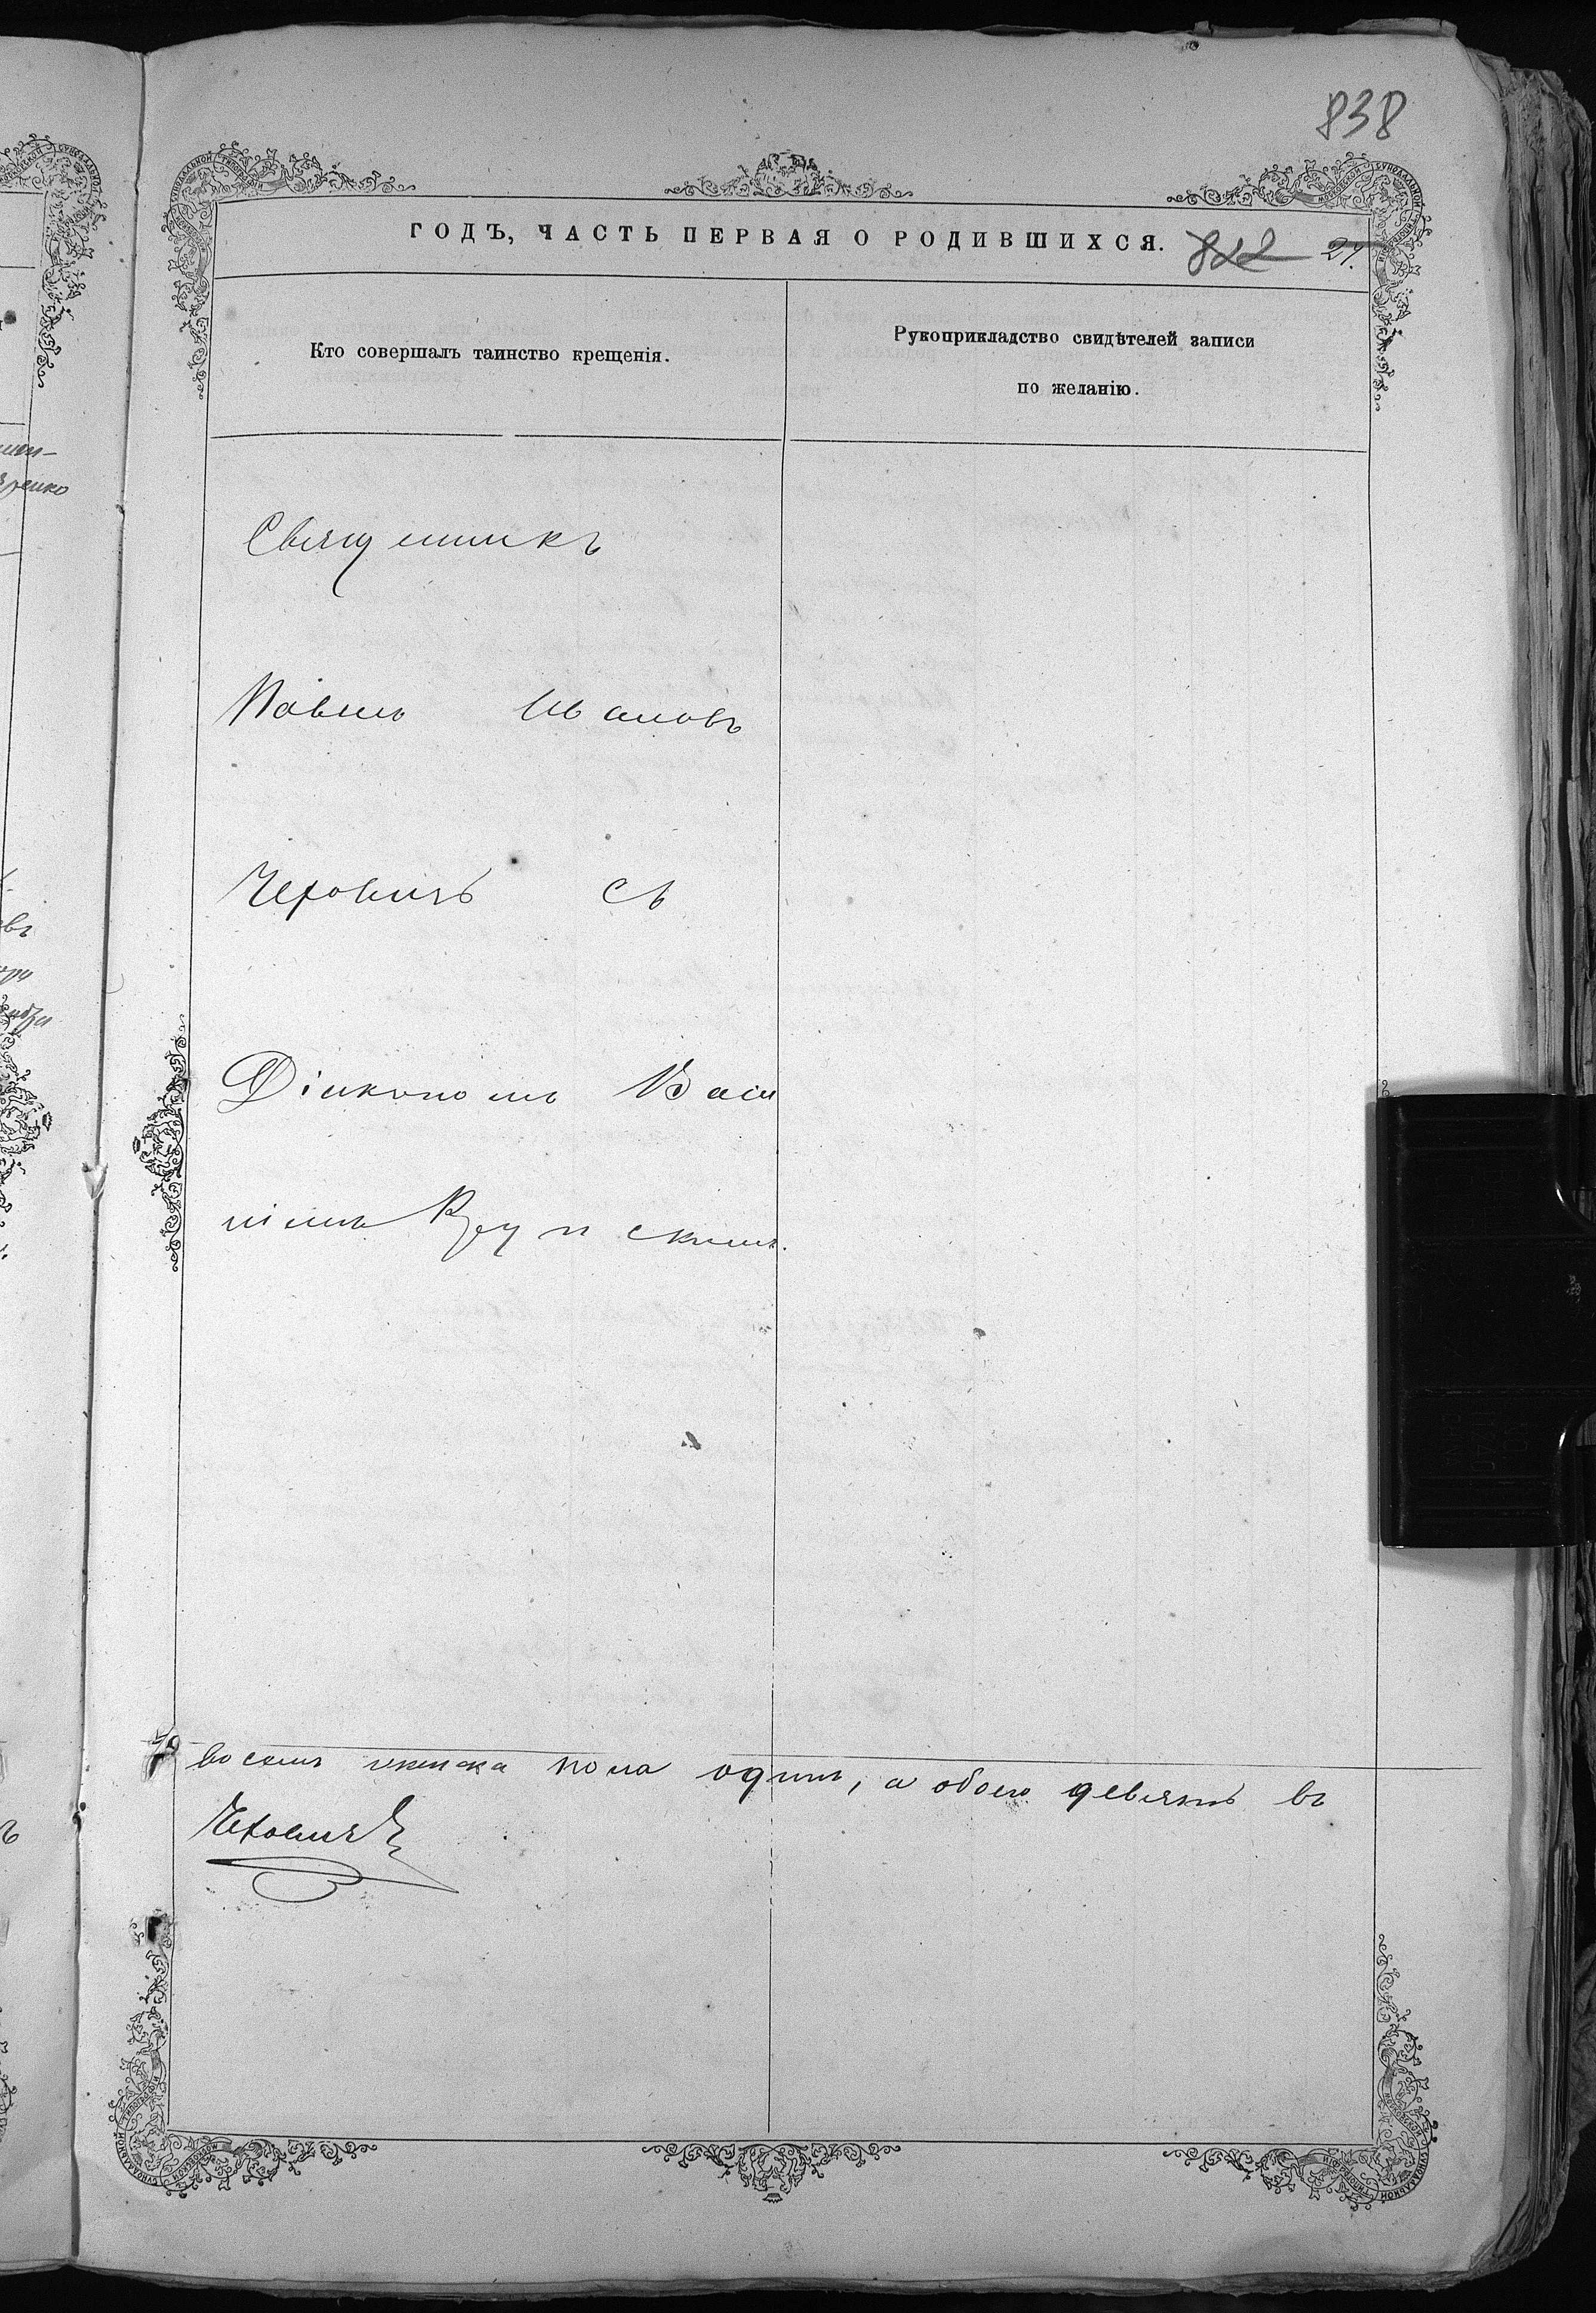 838
ГОДЪ, ЧАСТЬ ПЕРВАЯ О РОДИВШИХСЯ.
822 27.
Кто совершалъ таинство крещенія.
Рукоприкладство свидѣтелей записи
по желанію.
Священникъ
Павелъ Ивановъ
Чеховичъ съ
Діакономъ Васи
ліемъ
восемь женска пола одинъ, а обоего девять въ
Чеховичъ